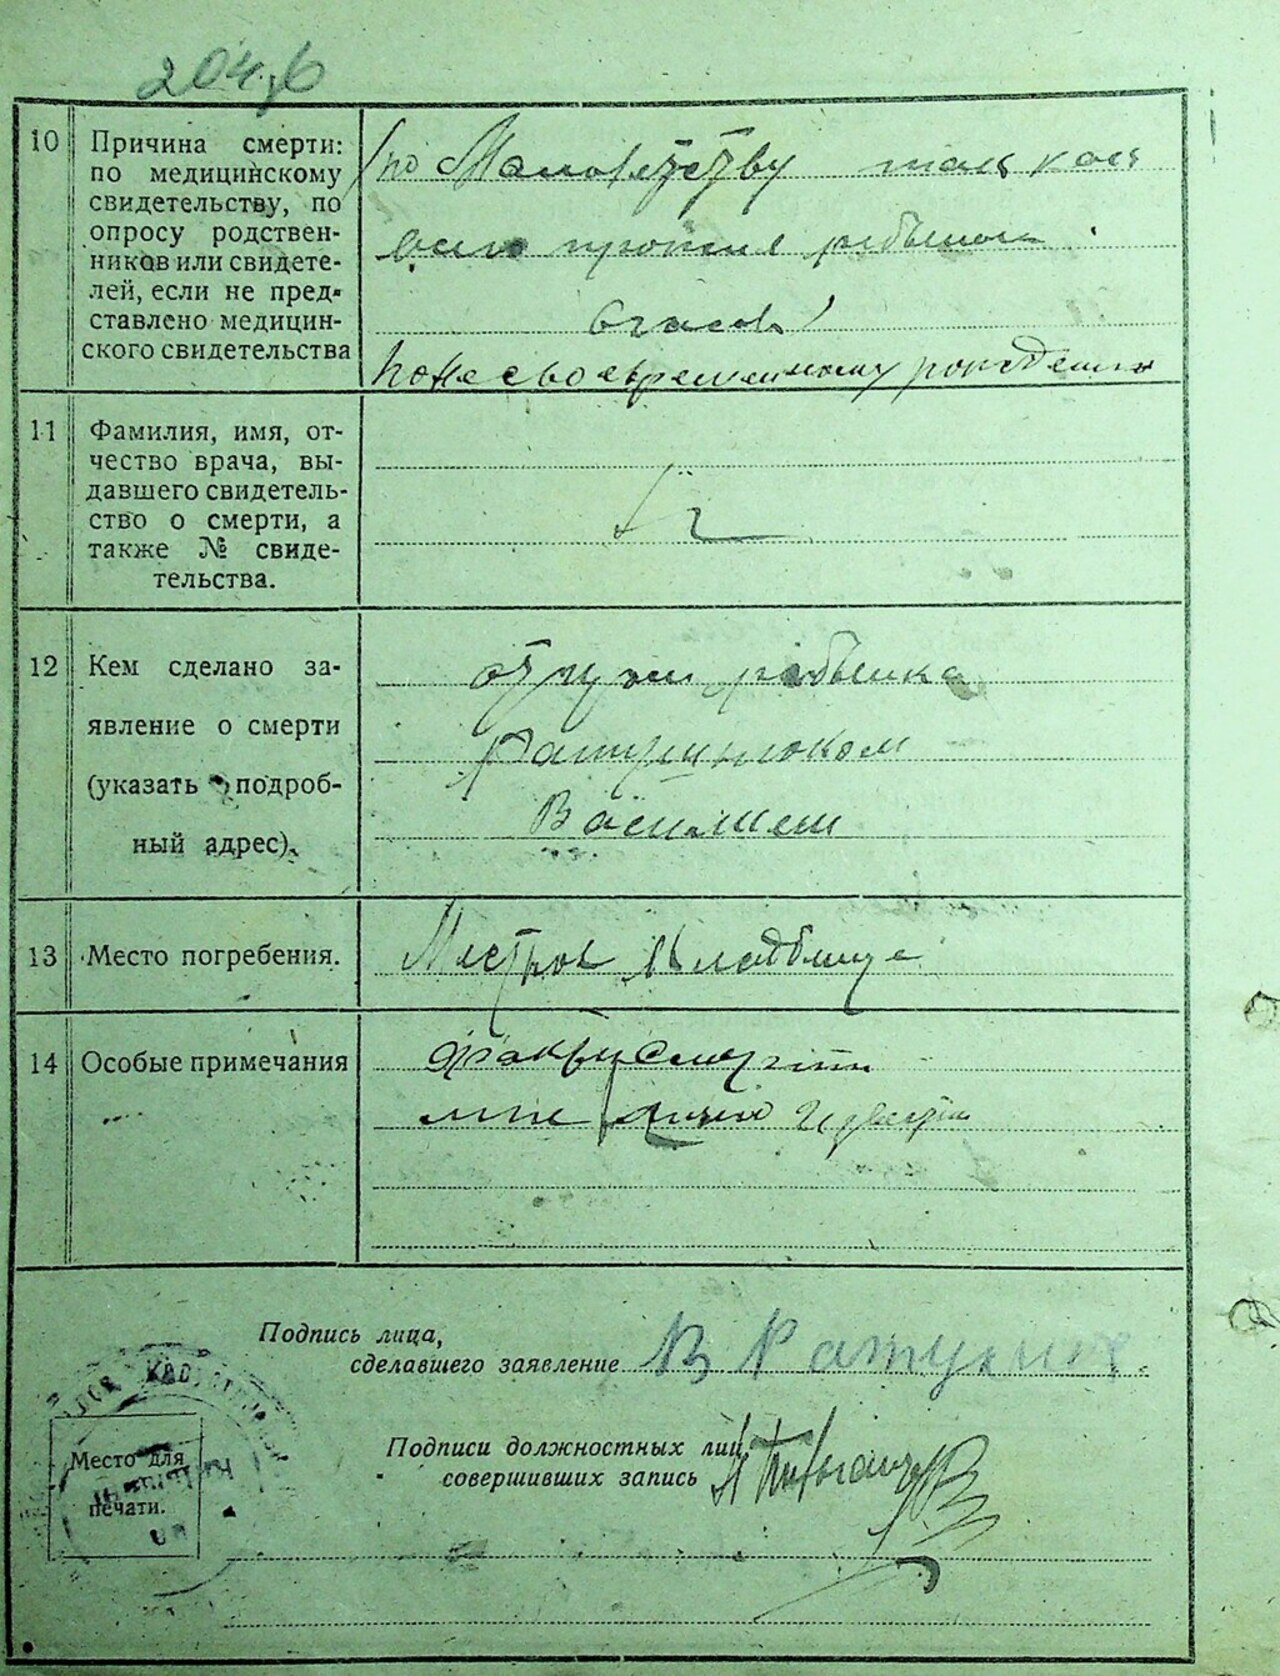 10 Причина смерти:
по медицинскому
свидетельству, по
опросу родствен-
ников или свидете-
лей, если не пред-
ставлено медицин-
ского свидетельства
по Малолетству так как
прожил ребенок
часов
по несвоевременному рождению
11 Фамилия, имя, от-
чество врача, вы-
давшего свидетель-
ство о смерти, а
также № свиде-
тельства.
12 Кем сделано за-
явление о смерти
(указать подроб-
ный адрес).
отцом ребенка
Ратушняком
Василием
13 Место погребения.
кладбище
14 Особые примечания
факт смерти
мне лично известен
Подпись лица,
сделавшего заявление В Ратушняк
Подписи должностных лиц,
совершивших запись
Место для
печати.